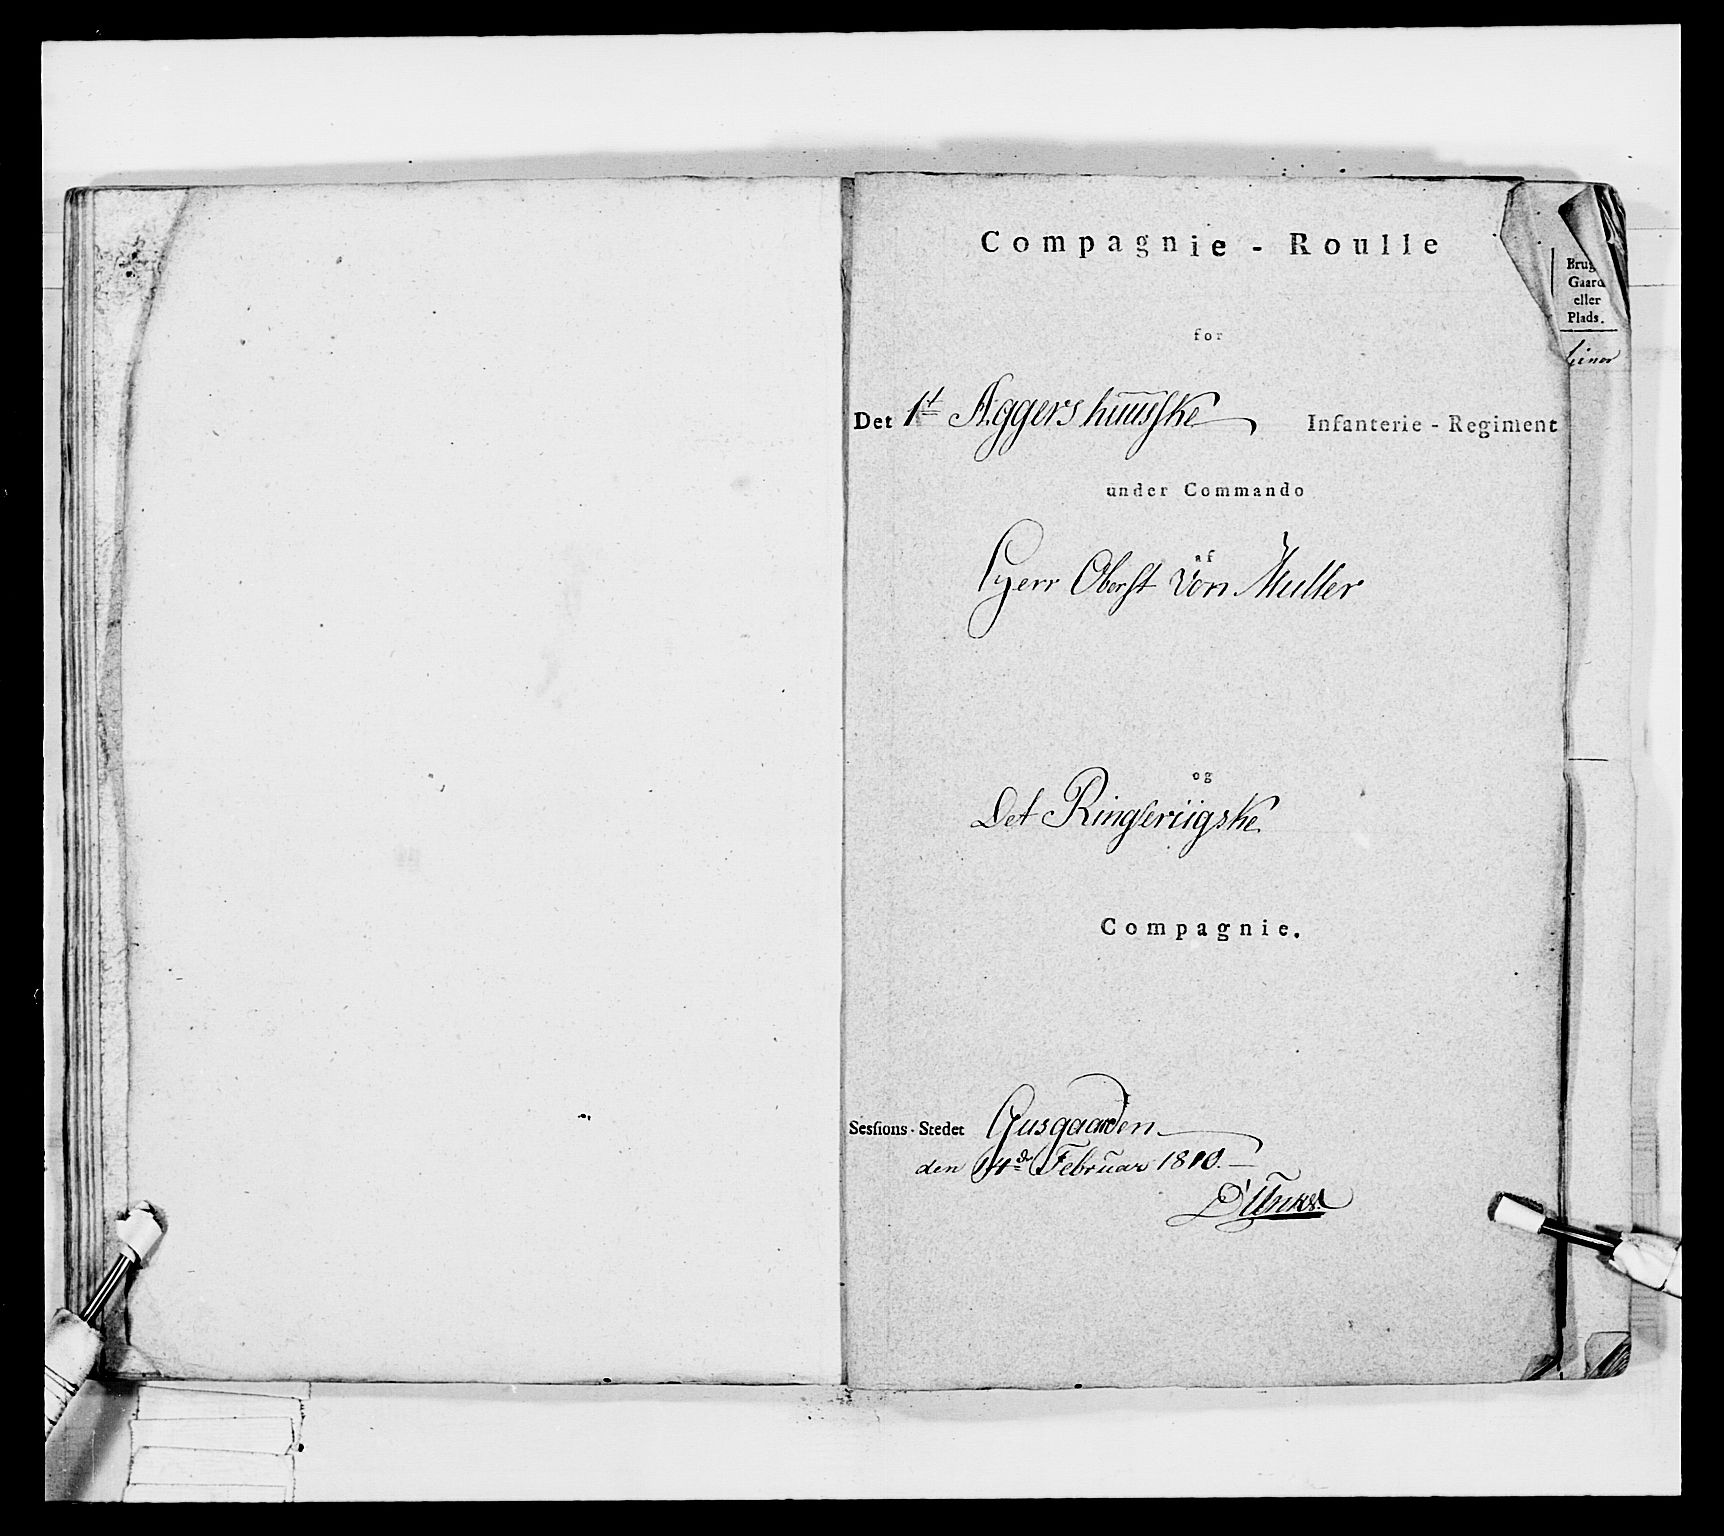 Compagnie - Roulle
for
Det 1t Aggershuusske Infanterie - Regiment
under Commando
af
Herr Oberst von Muller
og
Det Ringeriigske
Compagnie.
Sessions-Stedet Gusgaarden
den 14de Februar 1810.
Gaard
eller
Plads.